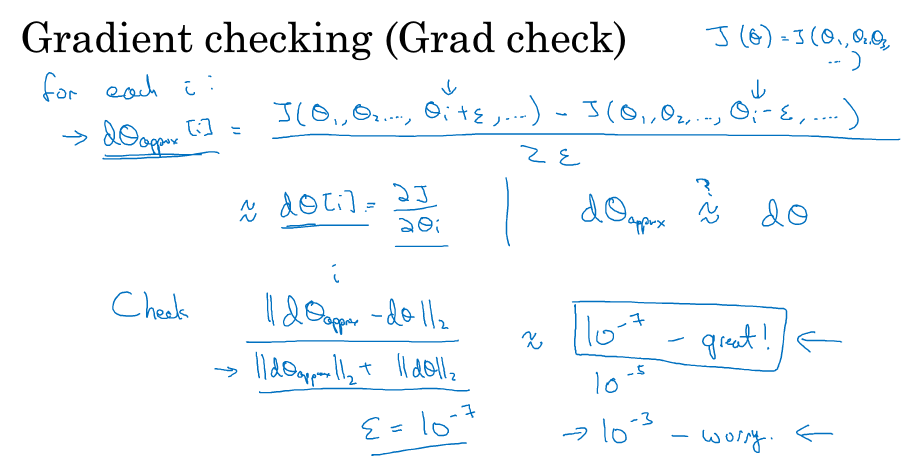 Gradient checking (Grad check)
J(θ) = J(θ₁, θ₂, θ₃, ...)
for each i:
→ dθapprox[i] = (J(θ₁, θ₂, ..., θᵢ+ε, ...) - J(θ₁, θ₂, ..., θᵢ-ε, ...)) / 2ε
≈ dθ[i] = ∂J/∂θᵢ | dθapprox ≈? dθ
i
Check ||dθapprox - dθ||₂ / (||dθapprox||₂ + ||dθ||₂) ≈ 10⁻⁷ - great! ←
10⁻⁵
ε = 10⁻⁷ → 10⁻³ - worry. ←